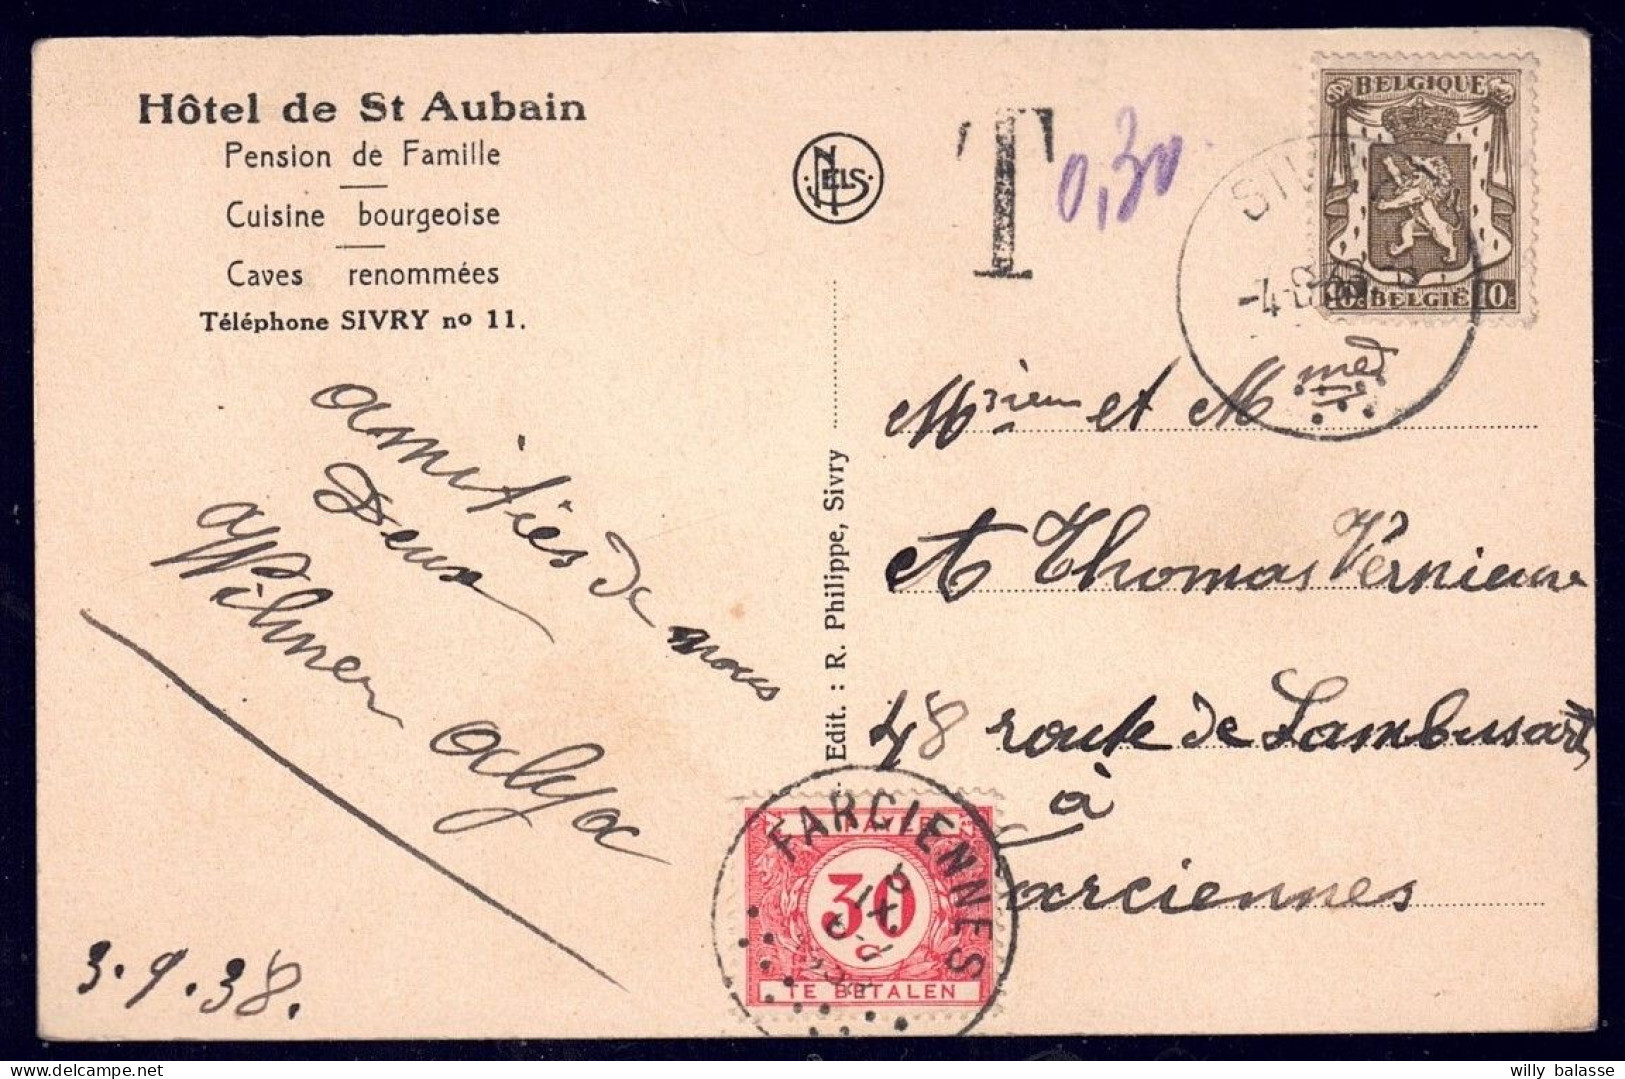 Hôtel de St Aubain
Pension de Famille
Cuisine bourgeoise
Caves renommées
Téléphone SIVRY no 11.
amitiés de nous
Deux
Wilmer
3.9.38.
NELS
Edit. : R. Philippe, Sivry
T 0,30
BELGIQUE
10c BELGIË 10c
-4
Mrsieur et Mmes
Thomas
48 route de Lambusart
à
Farciennes
FARCIENNES
30
TE BETALEN
willy balasse